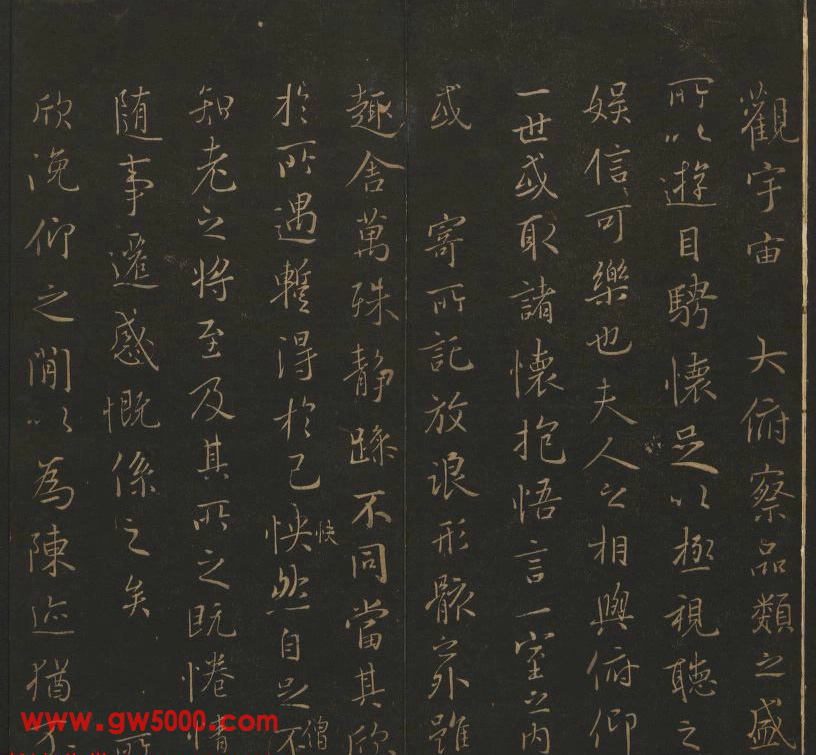 觀宇宙 大俯察品類之盛
所以遊目騁懷足以極視聽之
娛信可樂也夫人之相與俯仰
一世或取諸懷抱悟言一室之內
或 寄所託放浪形骸之外雖
趣舍萬殊静躁不同當其欣
於所遇蹔得於己怏然自足不
快
僧
知老之將至及其所之既惓情
随事遷感慨係之矣 所
欣俛仰之閒以為陳迹猶不
www.gw5000.com